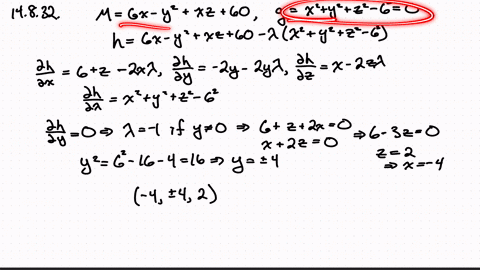 14.8.32 M = 6x-y² + xz + 60, g = x²+y²+z²-6=0
h = 6x-y²+xz+60-λ(x²+y²+z²-6²)
∂h/∂x = 6+z-2xλ, ∂h/∂y = -2y-2yλ, ∂h/∂z = x-2zλ
∂h/∂λ = x²+y²+z²-6²
∂h/∂y = 0 ⇒ λ=-1 if y≠0 ⇒ 6+z+2x=0 ⇒ 6-3z=0
x+2z=0 z=2
y²=6²-16-4=16 ⇒ y=±4 ⇒ x=-4
(-4, ±4, 2)